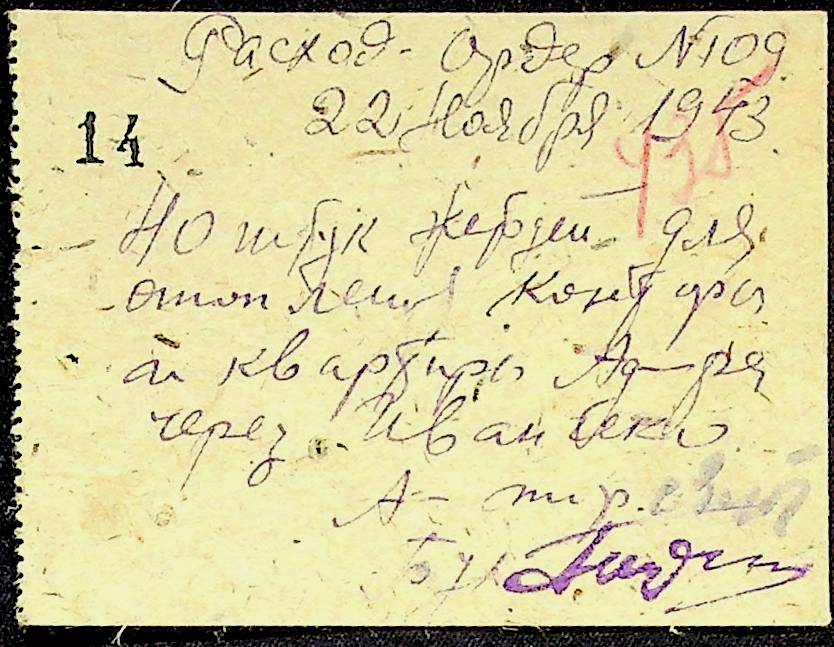 Расход - Ордер № 109
22 Ноября 1943
14
40 штук жердей для
отопления конторы
и квартиры Ад-ра
через
А-
Бух